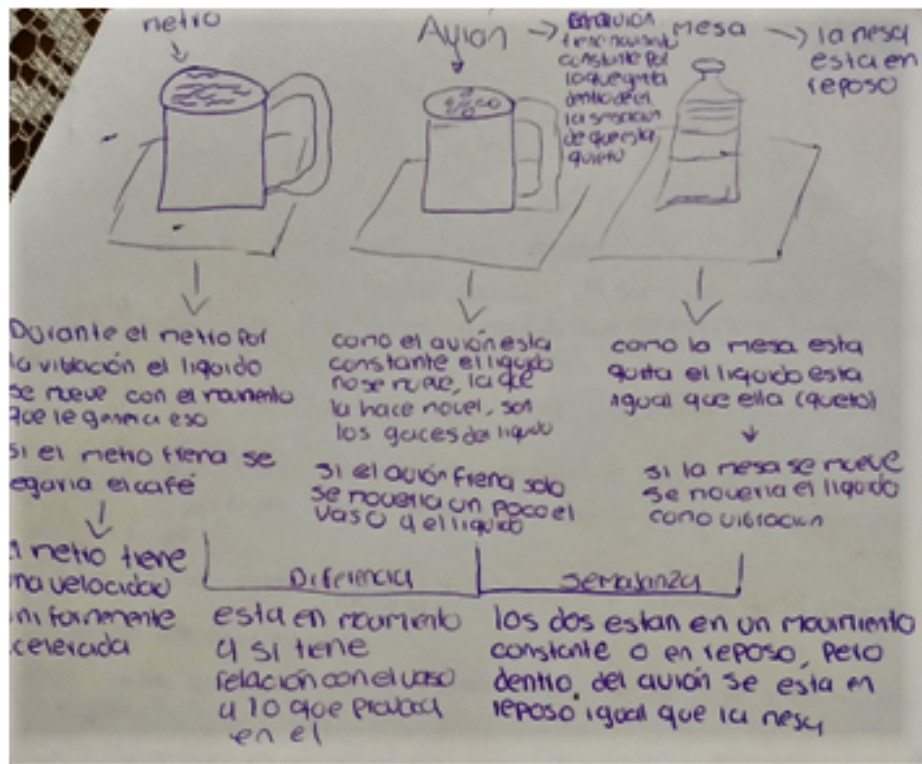 metro
Avión → 
tiene movimiento
constante por
lo que
dentro de el
la sensacion
de que esta
quieto
mesa → la mesa
esta en
reposo
Durante el metro por
la vibración el liquido
se mueve con el movimiento
que le genera eso
si el metro frena se
egaria el café
metro tiene
na velocidad
niformemente
celerada
como el avión esta
constante el liquido
no se mueve, la que
la hace mover, son
los gaces del liquido
si el avión frena solo
se moveria un poco el
vaso y el liquido
como la mesa esta
quieta el liquido esta
igual que ella (quieto)
si la mesa se mueve
se moveria el liquido
como vibracion
Diferencia
esta en movimiento
y si tiene
relación con el vaso
y lo que provoca
en el
semajanza
los dos estan en un movimiento
constante o en reposo, pero
dentro del avión se esta en
reposo igual que la mesa